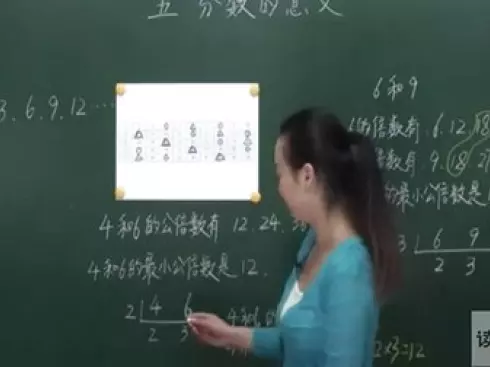 五 分数的意义
3.6.9.12……
6和9
6的倍数有.6.12.18
倍数有.9.18.2
4和6的公倍数有 12.24.3
的最小公倍数是1
4和6的最小公倍数是12.
3 6 9
2 3
2 4 6
2 3
4和6的
2×3=12
读